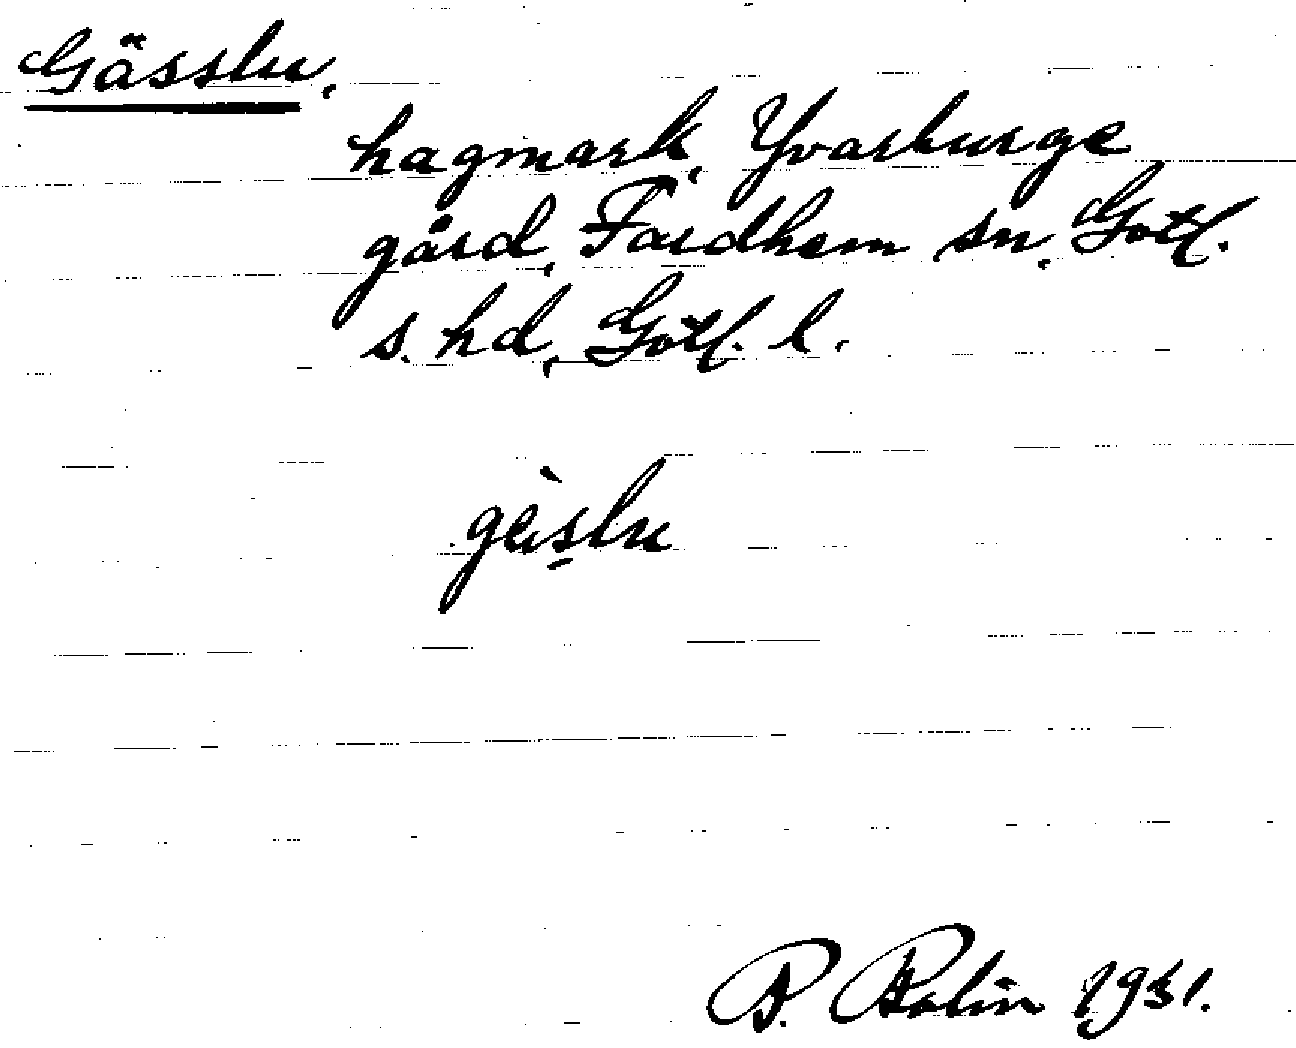 Gässlu,
hagmark, Yvarburge
gård, Fardhem sn, Gotl.
s. hd, Gotl. l.
gèislu
P. Bolin 1931.